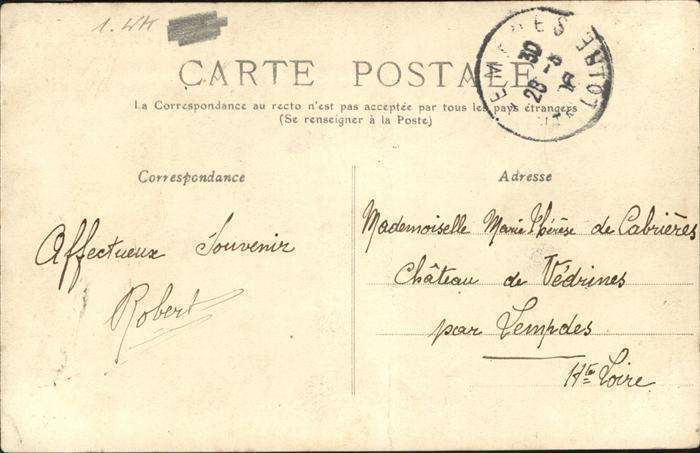 1.
CARTE POSTALE
La Correspondance au recto n'est pas acceptée par tous les pays étrangers
(Se renseigner à la Poste)
Correspondance
Affectueux Souvenir
Robert
Adresse
Mademoiselle Marie Thérèse de Cabrières
Château de Védrines
par Lempdes
Hte Loire
LOIRE
30
28